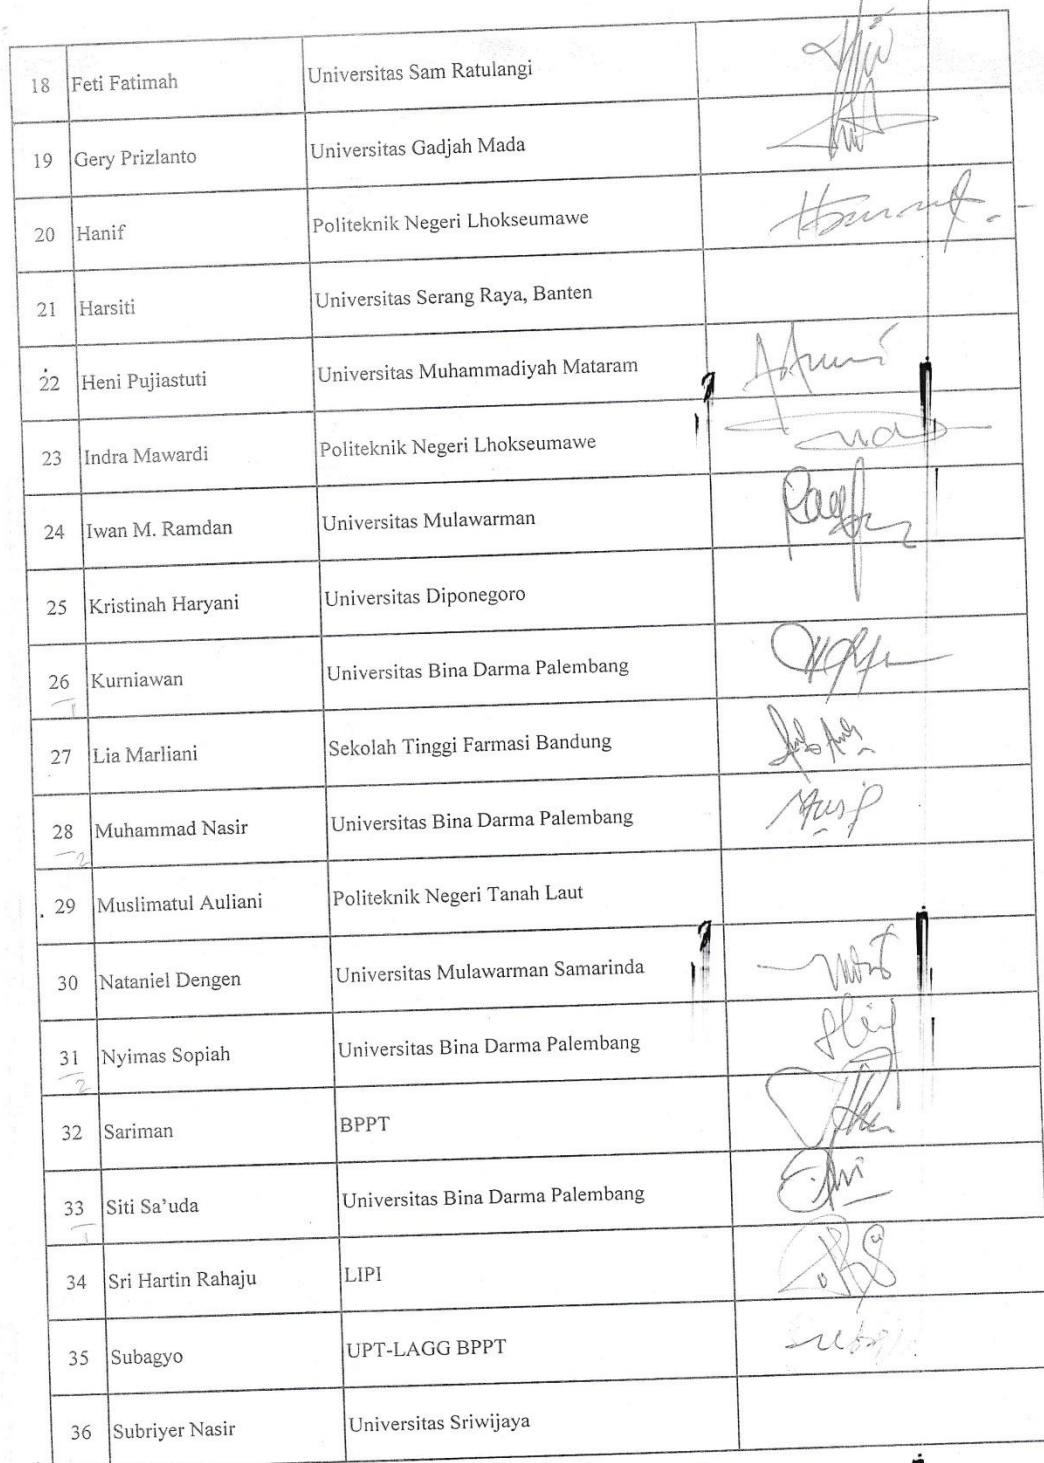 18 Feti Fatimah Universitas Sam Ratulangi
19 Gery Prizlanto Universitas Gadjah Mada
20 Hanif Politeknik Negeri Lhokseumawe
21 Harsiti Universitas Serang Raya, Banten
22 Heni Pujiastuti Universitas Muhammadiyah Mataram
23 Indra Mawardi Politeknik Negeri Lhokseumawe
24 Iwan M. Ramdan Universitas Mulawarman
25 Kristinah Haryani Universitas Diponegoro
26 Kurniawan Universitas Bina Darma Palembang
1
27 Lia Marliani Sekolah Tinggi Farmasi Bandung
28 Muhammad Nasir Universitas Bina Darma Palembang
2
29 Muslimatul Auliani Politeknik Negeri Tanah Laut
30 Nataniel Dengen Universitas Mulawarman Samarinda
31 Nyimas Sopiah Universitas Bina Darma Palembang
2
32 Sariman BPPT
33 Siti Sa'uda Universitas Bina Darma Palembang
1
34 Sri Hartin Rahaju LIPI
35 Subagyo UPT-LAGG BPPT
36 Subriyer Nasir Universitas Sriwijaya